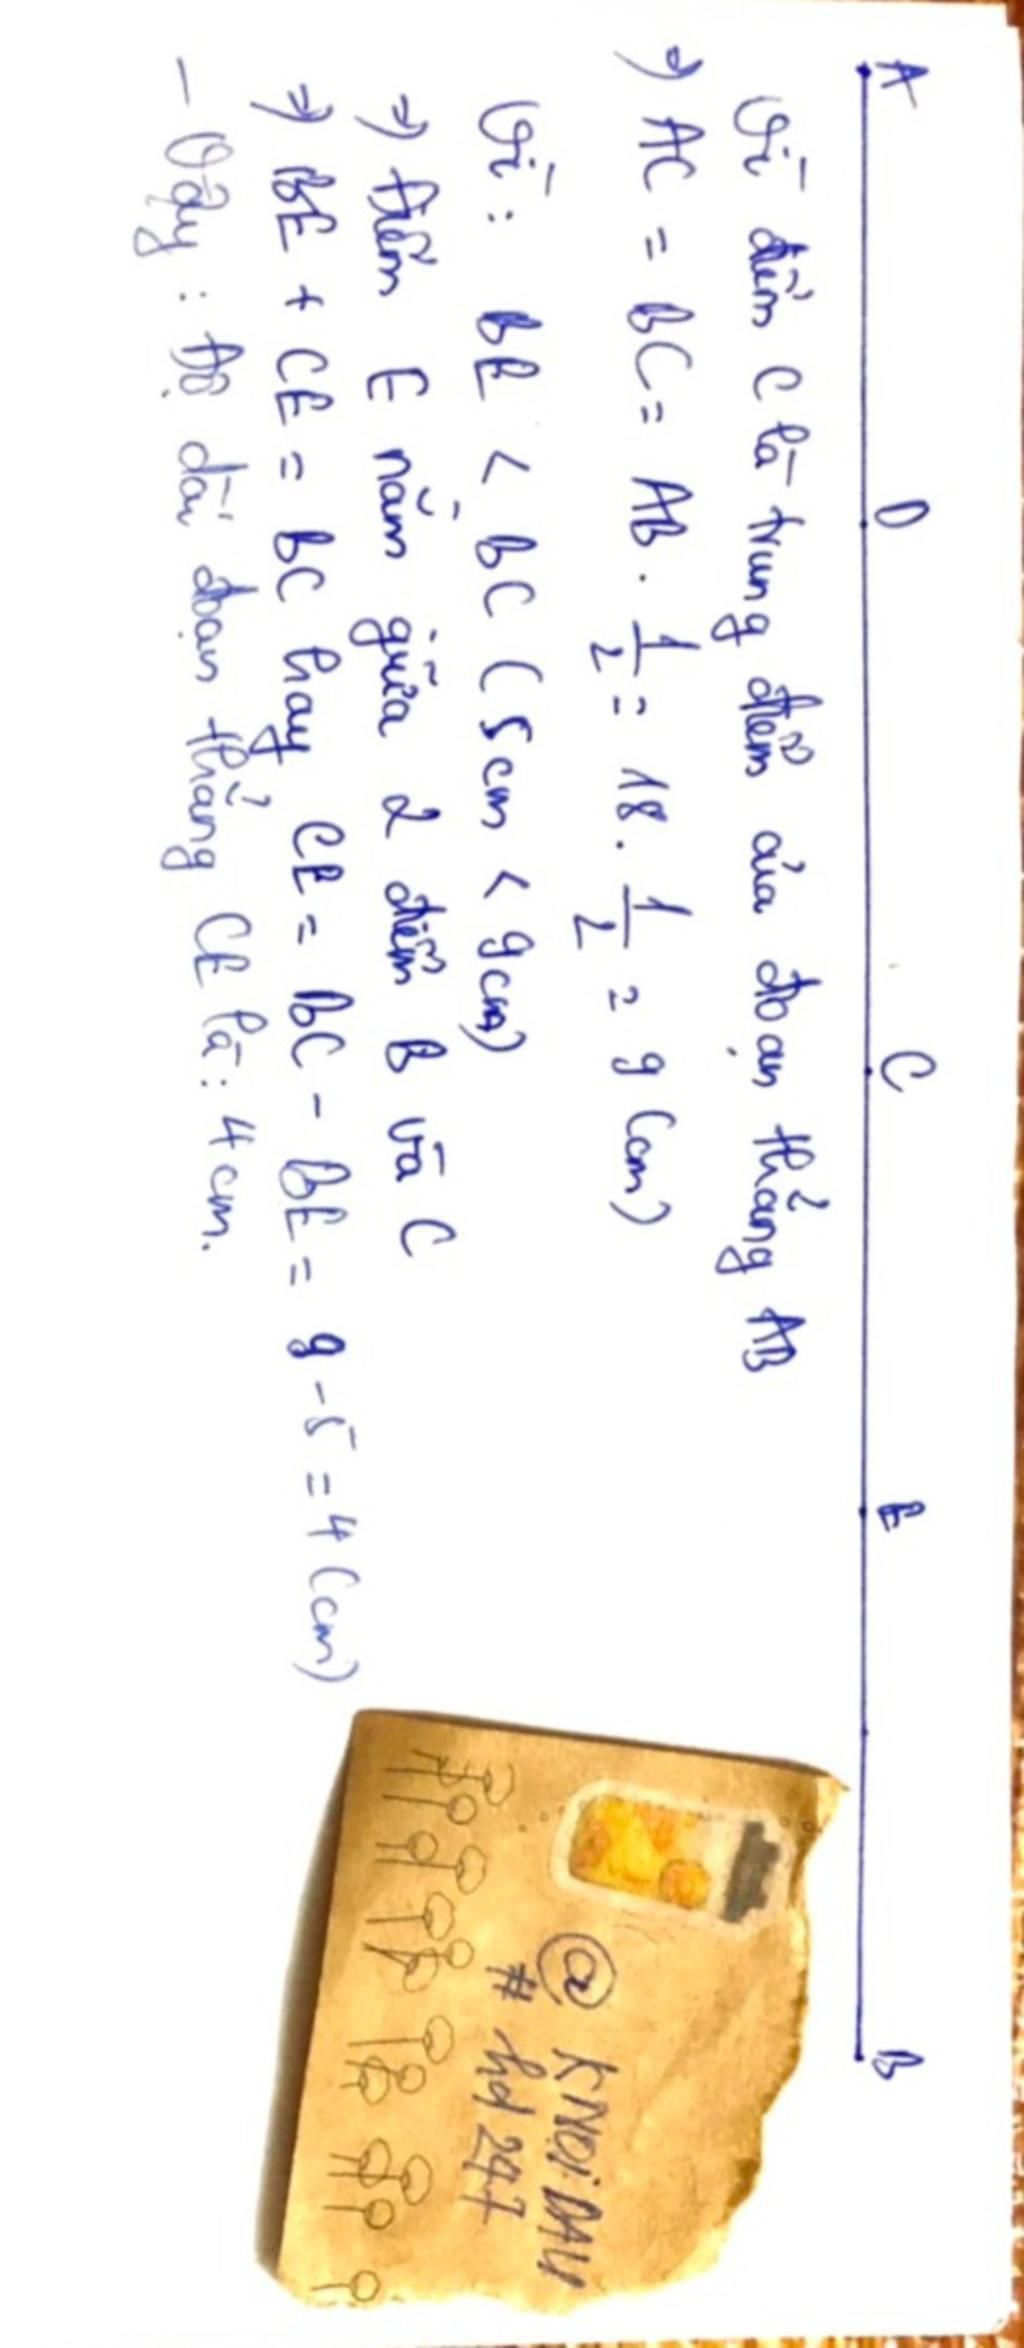 A D C E B
Vì điểm C là trung điểm của đoạn thẳng AB
=> AC = BC = AB . 1/2 = 18 . 1/2 = 9 (cm)
Vì : BE < BC ( 5cm < 9cm)
=> Điểm E nằm giữa 2 điểm B và C
=> BE + CE = BC hay CE = BC - BE = 9 - 5 = 4 (cm)
- Vậy : Độ dài đoạn thẳng CE là : 4 cm.
@ KNOiDAU
# hd 247